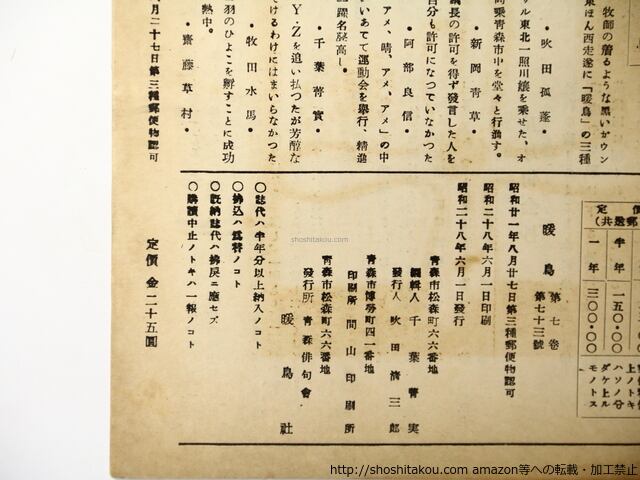 牧師の着るような黒いガウン
東ほん西走遂に「暖鳥」の三種
• 吹田孤蓬 •
ル東北一照川嬢を乗せた、オ
乗青森市中を堂々と行進す。
• 新岡青草 •
議長の許可を得ず発言した人を
自分も許可になつていなかつた
• 阿部良信 •
アメ、晴、アメ、アメ」の中
いあてて運動会を挙行、精進
躍名声高し。
• 千葉菁実 •
Y・Zを追い払つたが芳醇な
けるわけにはまいらなかつた
• 牧田水馬 •
羽のひよこを孵すことに成功
熱中。
• 齋藤草村 •
月二十七日第三種郵便物認可
定價
(共送郵
半年 一五〇・〇〇
一年 三〇〇・〇〇
ハソノ分
ダケ上ル
モノトス
暖鳥 第七巻 第七十三號
昭和廿一年八月廿七日第三種郵便物認可
昭和二十八年六月一日印刷
昭和二十八年六月一日発行
青森市松森町六六番地
編輯人 千葉菁実
発行人 吹田清三郎
青森市博労町四一番地
印刷所 間山印刷所
青森市松森町六六番地
發行所 青森俳句會
暖鳥社
〇誌代ハ半年分以上納入ノコト
〇拂込ハ爲替ノコト
〇既納誌代ハ拂戻ニ應セズ
〇購讀中止ノトキハ一報ノコト
定價 金二十五圓
shoshitakou.com
http://shoshitakou.com amazon等への転載・加工禁止